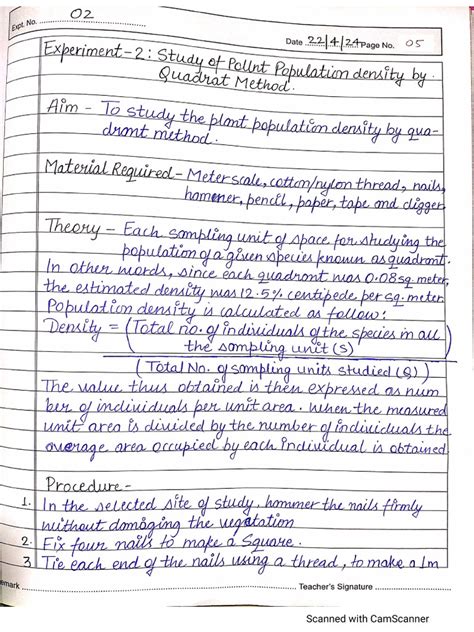 Expt. No. 02
Date 22/4/24 Page No. 05
Experiment-2: Study of Pollnt Population density by
Quadrat Method.
Aim - To study the plant population density by qua-
drant method.
Material Required - Meterscale, cotton/nylon thread, nails,
hammer, pencil, paper, tape and digger
Theory - Each sampling unit of space for studying the
population of a given species known as quadrant.
In other words, since each quadrant was 0.08 sq. meter,
the estimated density was 12.5% centipede per sq. meter
Population density is calculated as follow:
Density = (Total no. of individuals of the species in all
the sampling unit (S)
(Total No. of sampling units studied (Q))
The value thus obtained is then expressed as num
ber of individuals per unit area. When the measured
unit area is divided by the number of individuals the
average area occupied by each individual is obtained
Procedure -
1. In the selected site of study, hommer the nails firmly
without damaging the vegatation
2. Fix four nails to make a Square.
3 Tie each end of the nails using a thread, to make a 1m
emark
Teacher's Signature
Scanned with CamScanner